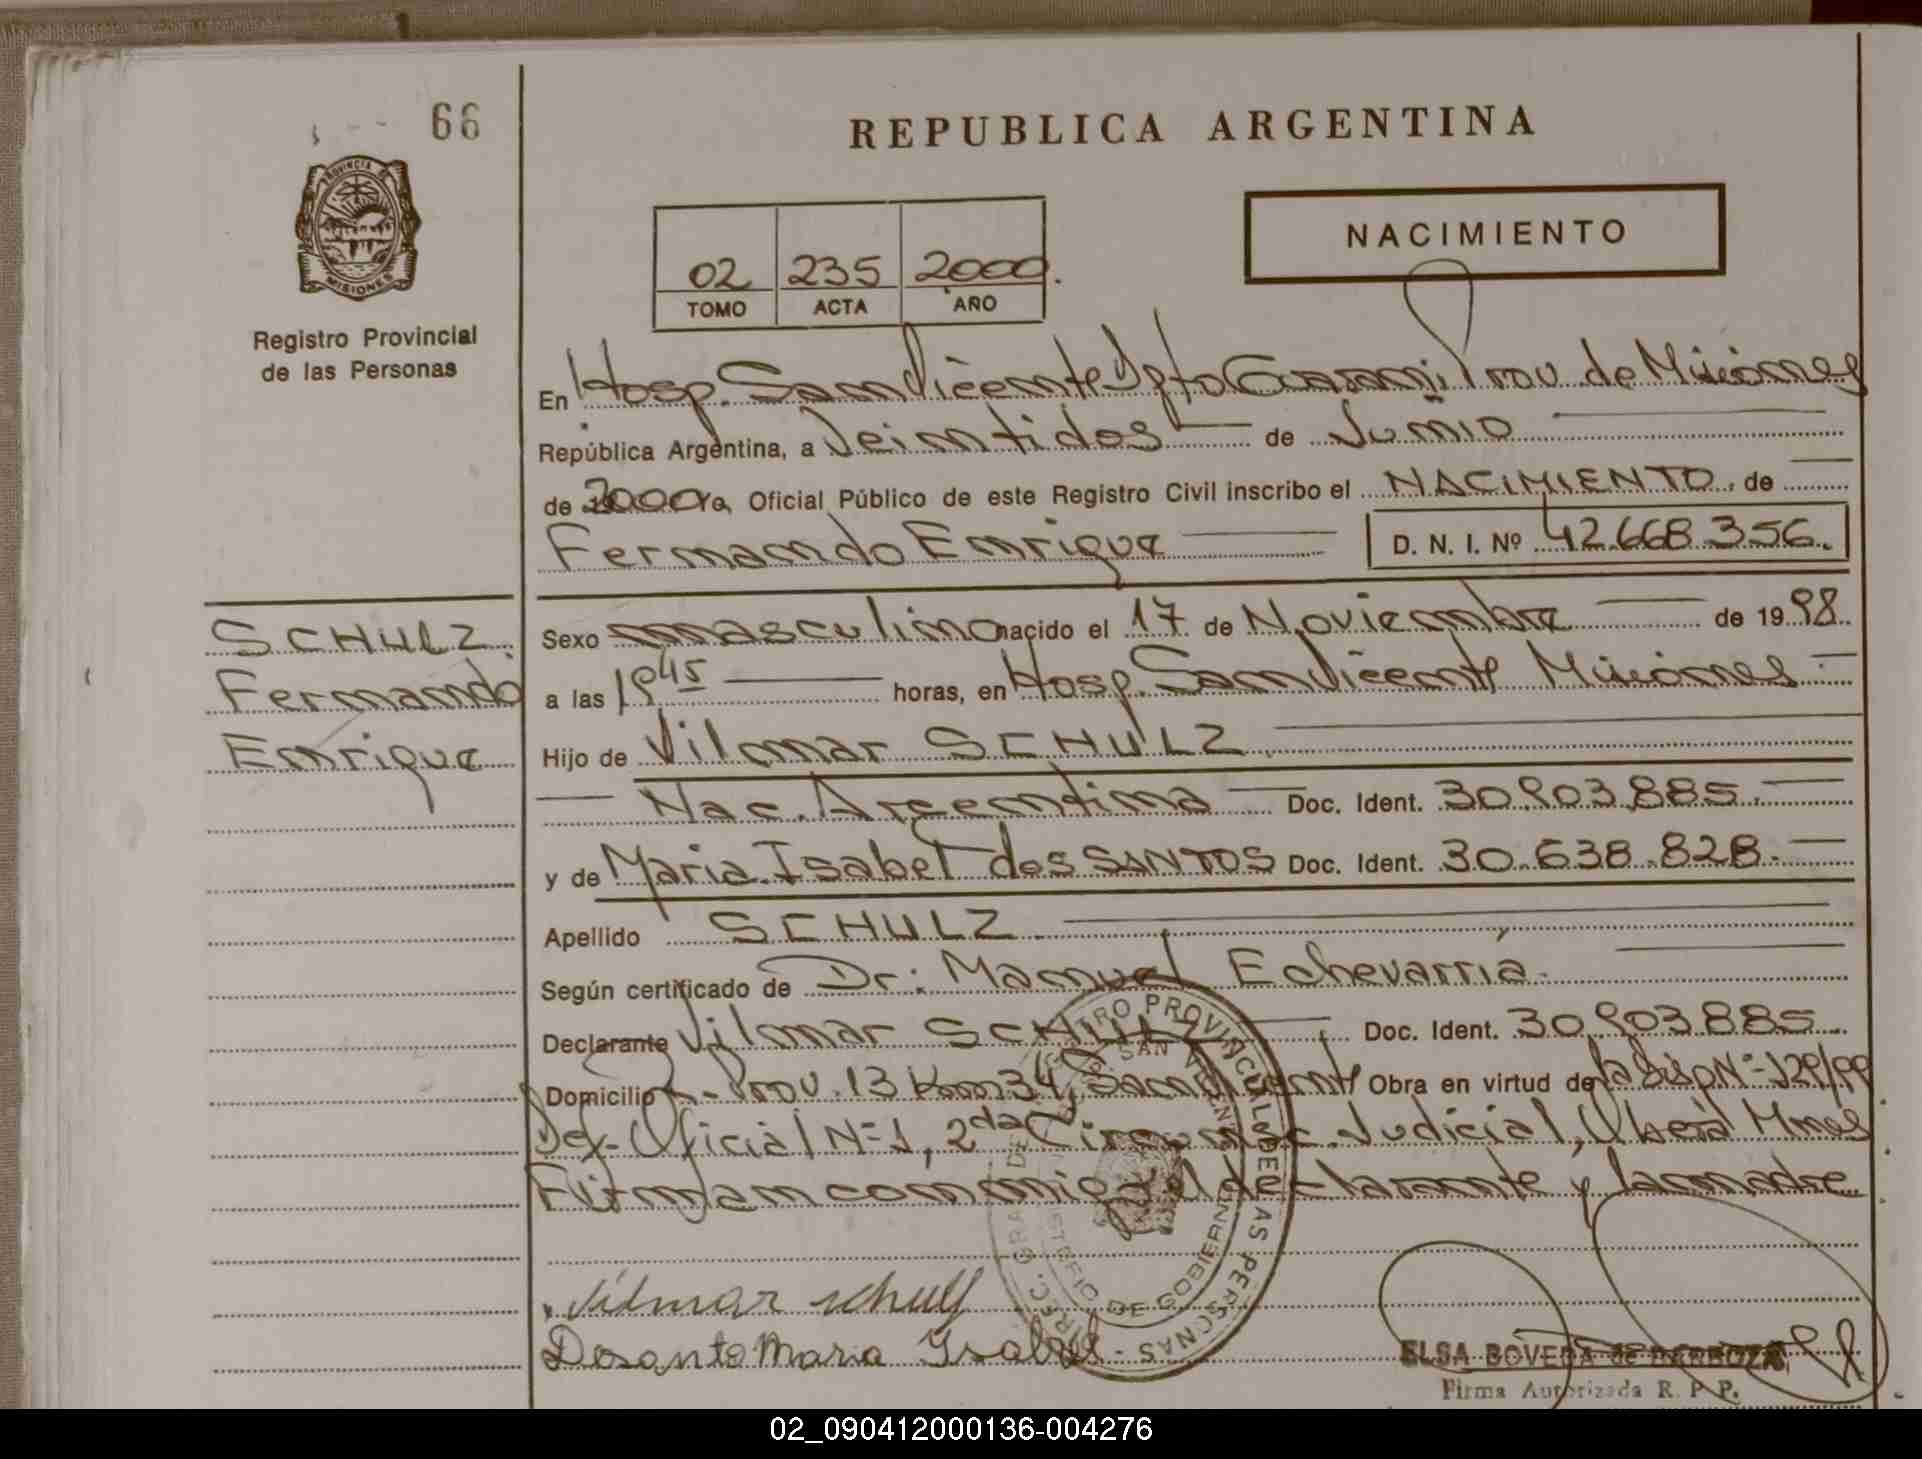 66
REPUBLICA ARGENTINA
PROVINCIA DE
MISIONES
Registro Provincial
de las Personas
NACIMIENTO
02 235 2000.
TOMO ACTA AÑO
En Hosp. San Vicente Dpto Guaraní Prov. de Misiones
República Argentina, a Veintidos de Junio
de 2000 Yo, Oficial Público de este Registro Civil inscribo el NACIMIENTO. de
Fernando Enrique D. N. I. Nº 42.668.356.
SCHULZ.
Fernando
Enrique
Sexo masculino nacido el 17 de Noviembre de 1998.
a las 19 45 horas, en Hosp. San Vicente Misiones
Hijo de Vilmar SCHULZ.
Nac. Argentina Doc. Ident. 30.903.885.
y de Maria Isabel dos SANTOS Doc. Ident. 30.638.828.
Apellido SCHULZ.
Según certificado de Dr: Manuel Echevarría.
Declarante Vilmar SCHULZ Doc. Ident. 30.903.885.
Domicilio Prov. 13 Km 34, San Vicente Obra en virtud de la Disp Nº 129/99
Def. Oficial Nº 1, 2da Circunsc. Judicial, Oberá Mnes
Firman conmigo el declarante y la madre
Vilmar Schulz
Dosanto Maria Ysabel
REGISTRO PROVINCIAL DE LAS PERSONAS
SAN VICENTE
MINISTERIO DE GOBIERNO
ELSA BOVEDA de BARBOZA
Firma Autorizada R. P. P.
02_090412000136-004276